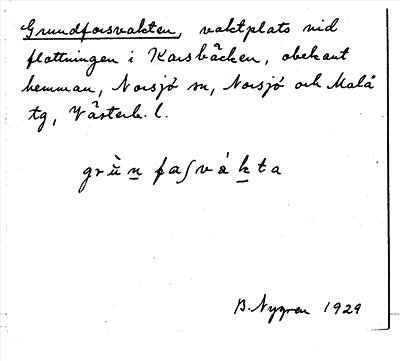 Grundforsvakten, vaktplats vid
flottningen i Karsbäcken, obekant
hemman, Norsjö sn, Norsjö och Malå
tg, Västerb. l.
grùn faʃvákta
B. Nygren 1929